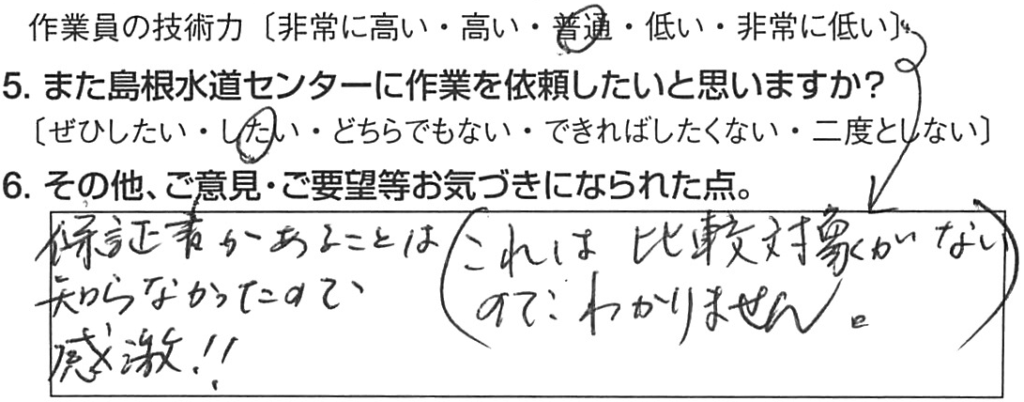 作業員の技術力〔非常に高い・高い・普通・低い・非常に低い〕
5. また島根水道センターに作業を依頼したいと思いますか？
〔ぜひしたい・したい・どちらでもない・できればしたくない・二度としない〕
6. その他、ご意見・ご要望等お気づきになられた点。
保証書があることは
知らなかったので、
感激!!
(これは比較対象がない
のでわかりません。)